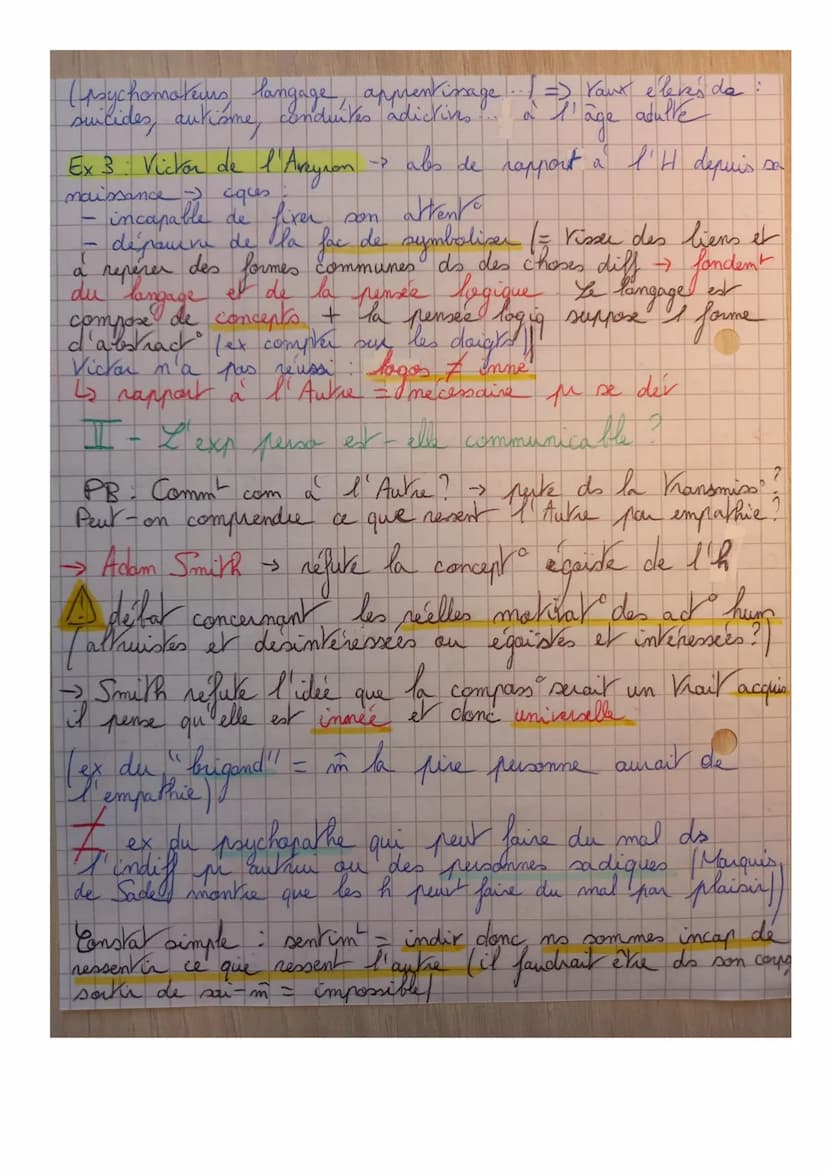 (psychomoteurs, langage, apprentissage ...) => taux élevés de :
suicides, autisme, conduites adictives ... à l'âge adulte
Ex 3 : Victor de l'Aveyron -> abs de rapport à l'H depuis sa
naissance -> cques :
- incapable de fixer son attent°
- dépourvu de la fac de symboliser (= tisser des liens et
à repérer des formes communes ds des choses diff -> fondemt
du langage et de la pensée logique. Le langage est
composé de concepts + la pensée logiq suppose 1 forme
d'abstract° (ex compter sur les doigts)
Victor n'a pas réussi : logos ≠ inné
↳ rapport à l'Autre = nécessaire pr se dév
II - L'exp perso est-elle communicable ?
PB : Commt com à l'Autre ? -> perte ds la transmiss° ?
Peut-on comprendre ce que ressent l'Autre par empathie ?
-> Adam Smith -> réfute la concept° égoïste de l'h
⚠ débat concernant les réelles motivat° des act° hum
(altruistes et désintéressées ou égoïstes et intéressées ?)
-> Smith réfute l'idée que la compass° serait un trait acquis
il pense qu'elle est innée et donc universelle
(ex du "brigand" = m̄ la pire personne aurait de
l'empathie)
≠ ex du psychopathe qui peut faire du mal ds
l'indiff pr autrui ou des personnes sadiques (Marquis
de Sade montre que les h peuvt faire du mal par plaisir)
Constat simple : sentimt = indir donc ns sommes incap de
ressentir ce que ressent l'autre (il faudrait être ds son corps
sortir de soi-m̄ = impossible)